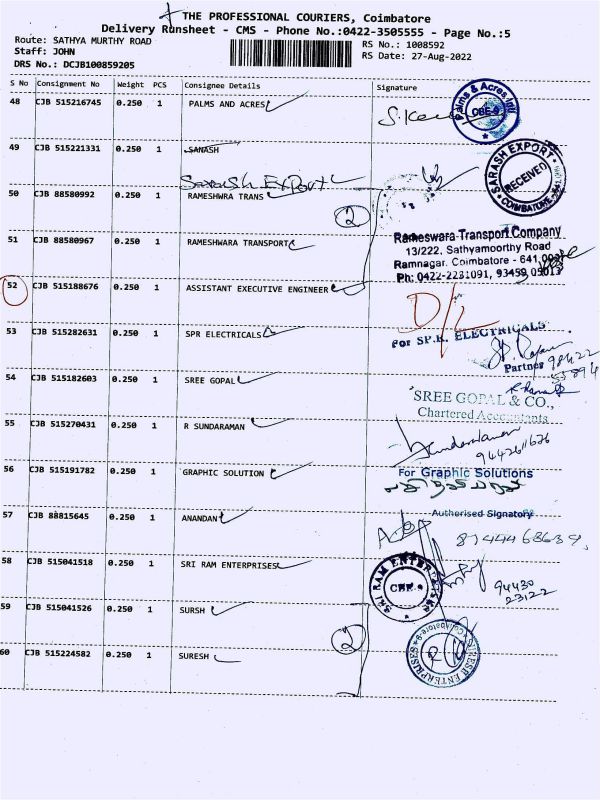 THE PROFESSIONAL COURIERS, Coimbatore
Delivery Runsheet - CMS - Phone No.:0422-3505555 - Page No.:5
Route: SATHYA MURTHY ROAD
RS No.: 1008592
Staff: JOHN
RS Date: 27-Aug-2022
DRS No.: DCJB100859205
S No Consignment No Weight PCS Consignee Details Signature
48 CJB 515216745 0.250 1 PALMS AND ACRES
S.
Palms & Acres
CBE-9
49 CJB 515221331 0.250 1 SANASH
Sarash Export
SARASH EXPORT
RECEIVED
COIMBATORE
50 CJB 88580992 0.250 1 RAMESHWRA TRANS
2
51 CJB 88580967 0.250 1 RAMESHWARA TRANSPORT
Rameswara Transport Company
13/222, Sathyamoorthy Road
Ramnagar, Coimbatore - 641 009
Ph: 0422-2231091, 93459 09013
52 CJB 515188676 0.250 1 ASSISTANT EXECUTIVE ENGINEER
D/L
53 CJB 515282631 0.250 1 SPR ELECTRICALS
For SP.R. ELECTRICALS
Partner 98422
54 CJB 515182603 0.250 1 SREE GOPAL
SREE GOPAL & CO.,
Chartered Accountants
55 CJB 515270431 0.250 1 R SUNDARAMAN
56 CJB 515191782 0.250 1 GRAPHIC SOLUTION
For Graphic Solutions
Authorised Signatory
57 CJB 88815645 0.250 1 ANANDAN
58 CJB 515041518 0.250 1 SRI RAM ENTERPRISES
SRI RAM ENTERPRISES
CBE-9
94430
23122
59 CJB 515041526 0.250 1 SURSH
2
60 CJB 515224582 0.250 1 SURESH
SURESH ENTERPRISES
Coimbatore-9